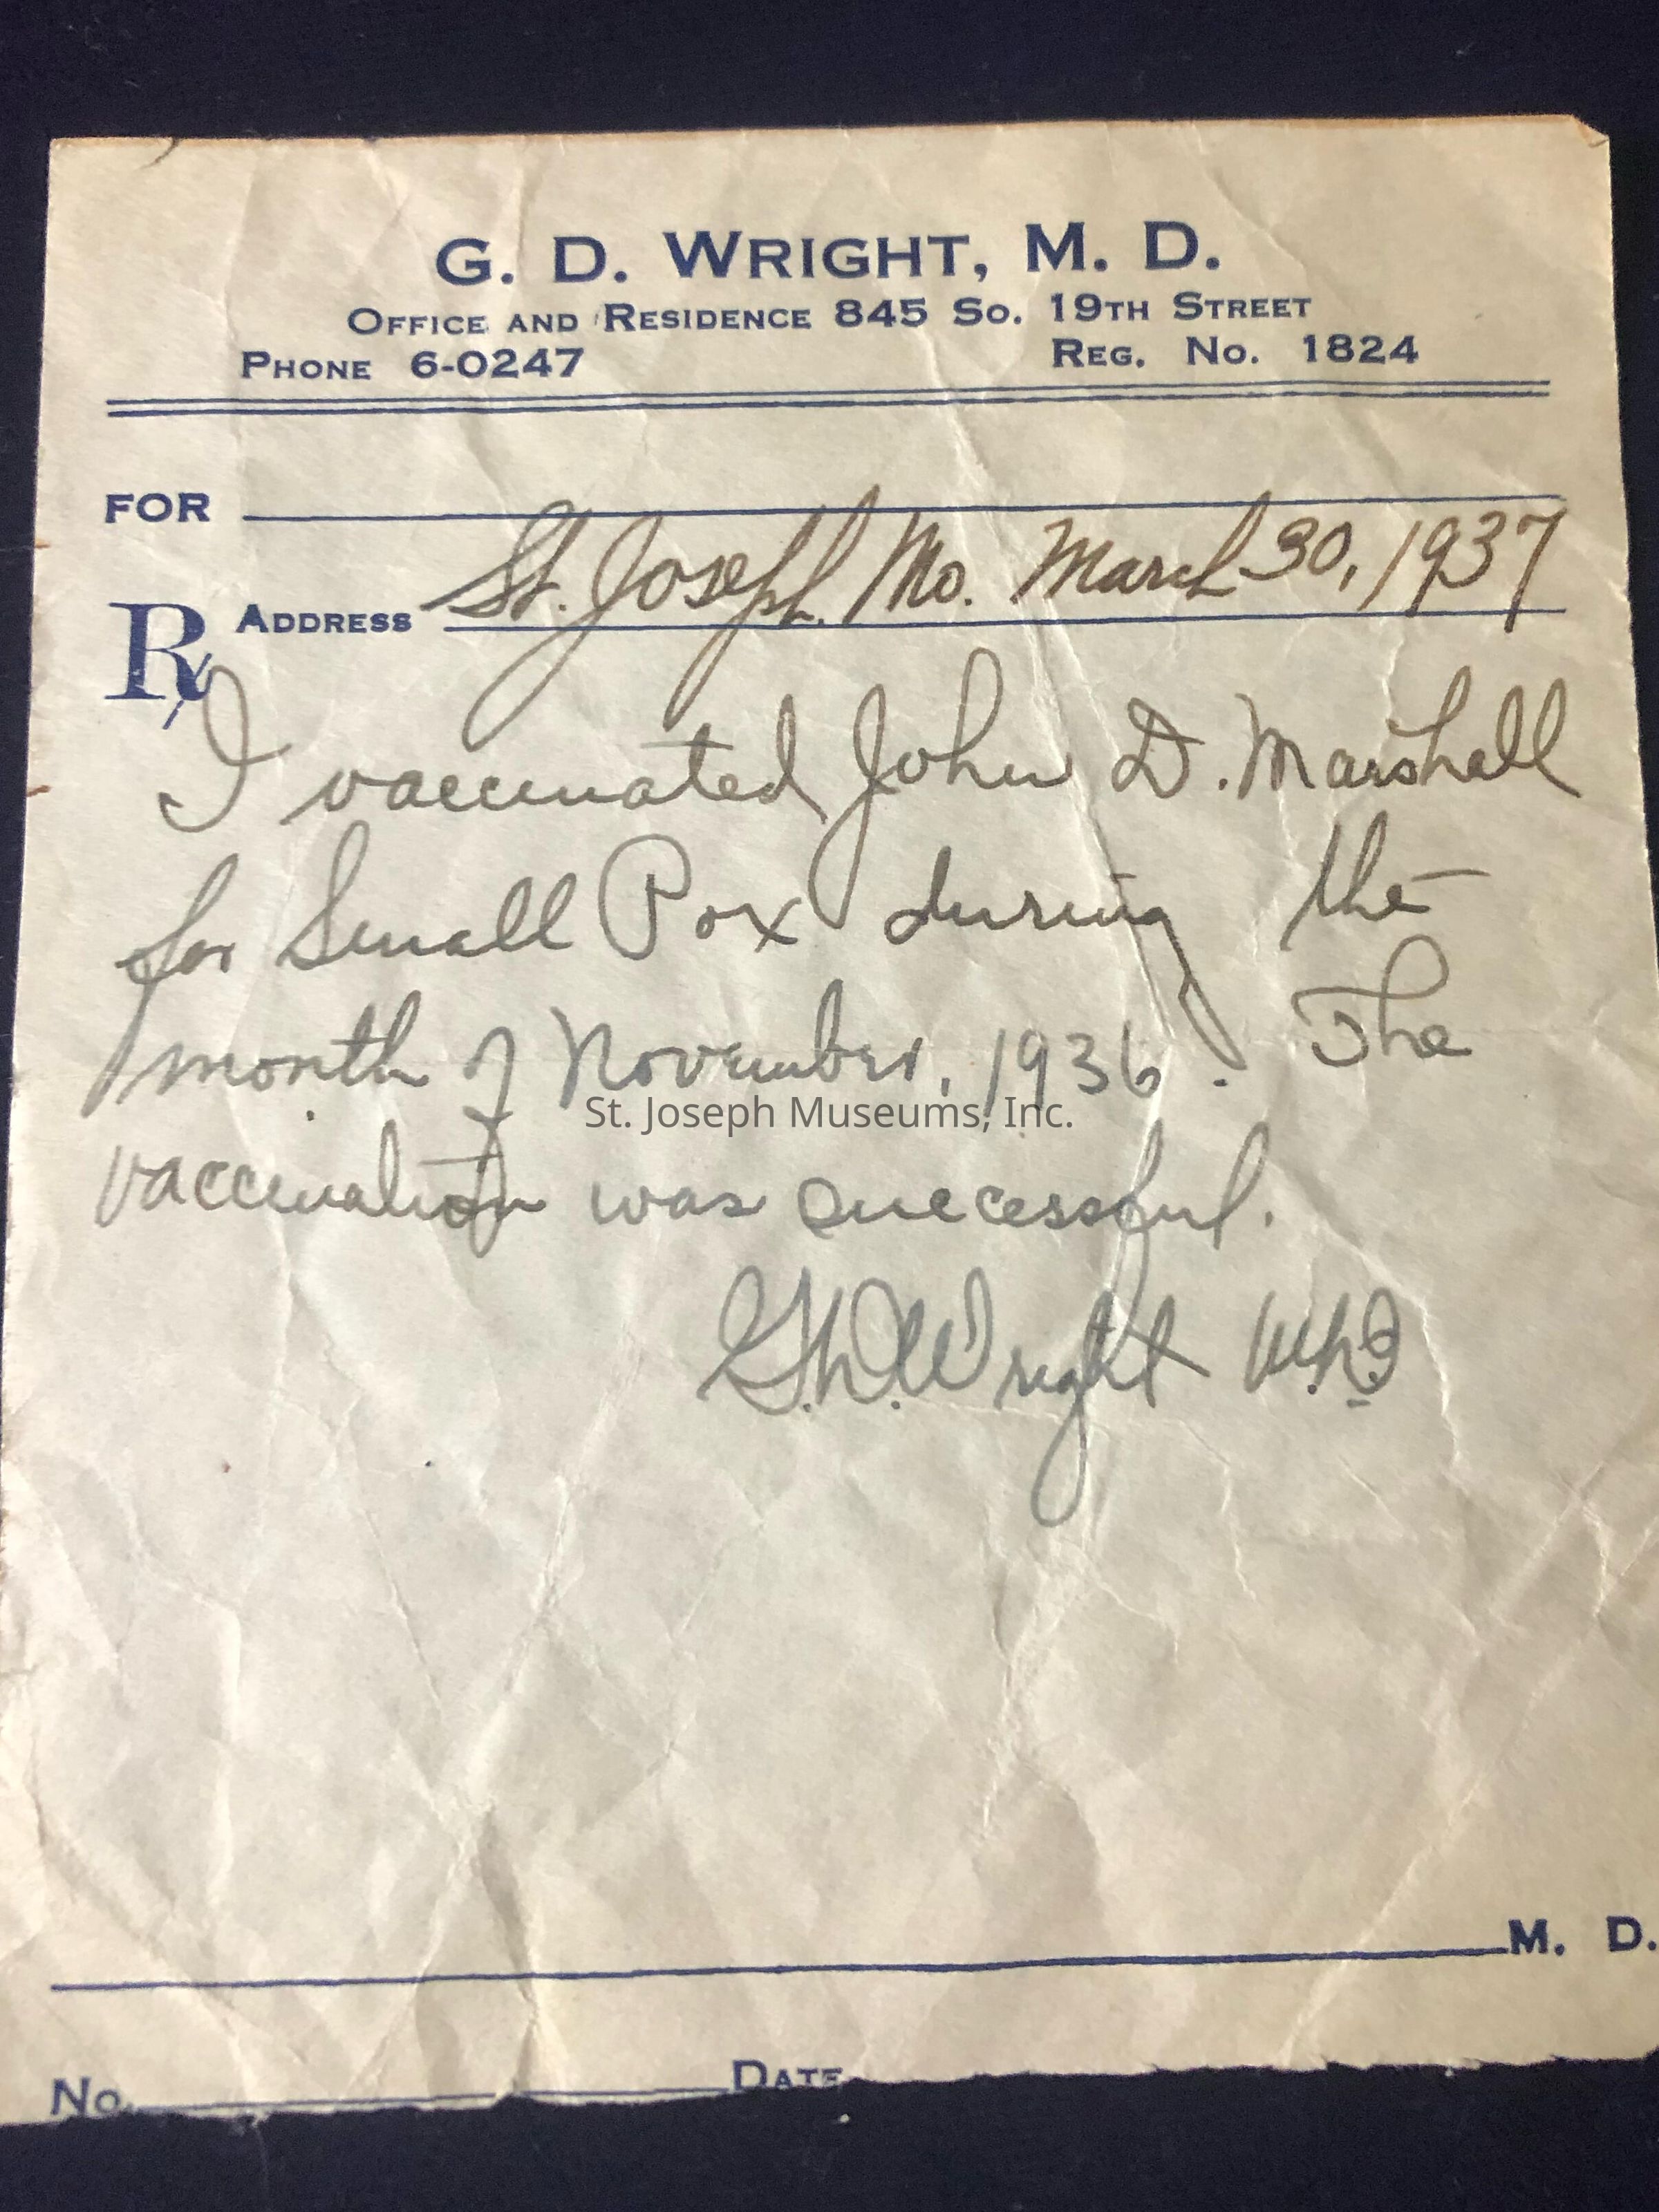 G. D. WRIGHT, M. D.
OFFICE AND RESIDENCE 845 So. 19TH STREET
PHONE 6-0247 REG. No. 1824
FOR
ADDRESS St. Joseph, Mo. March 30, 1937
Rx
I vaccinated John D. Marshall
for Small Pox during the
month of November, 1936. The
St. Joseph Museums, Inc.
vaccination was successful.
G.D. Wright M.D.
M. D.
No. DATE